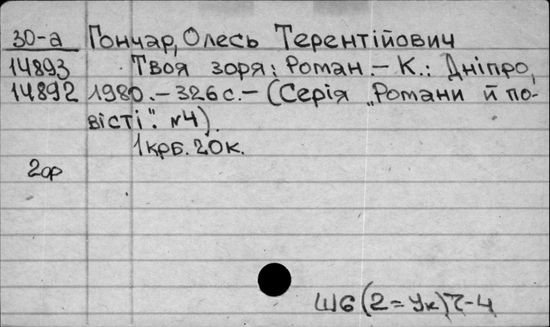 30-а Гончар, Олесь Терентійович
14893 Твоя зоря: Роман.- К.: Дніпро,
14892 1980.-326с.- (Серія „Романи й по-
вісті". №4).
1крб. 20к.
2ор
Ш6(2=Ук)7-4